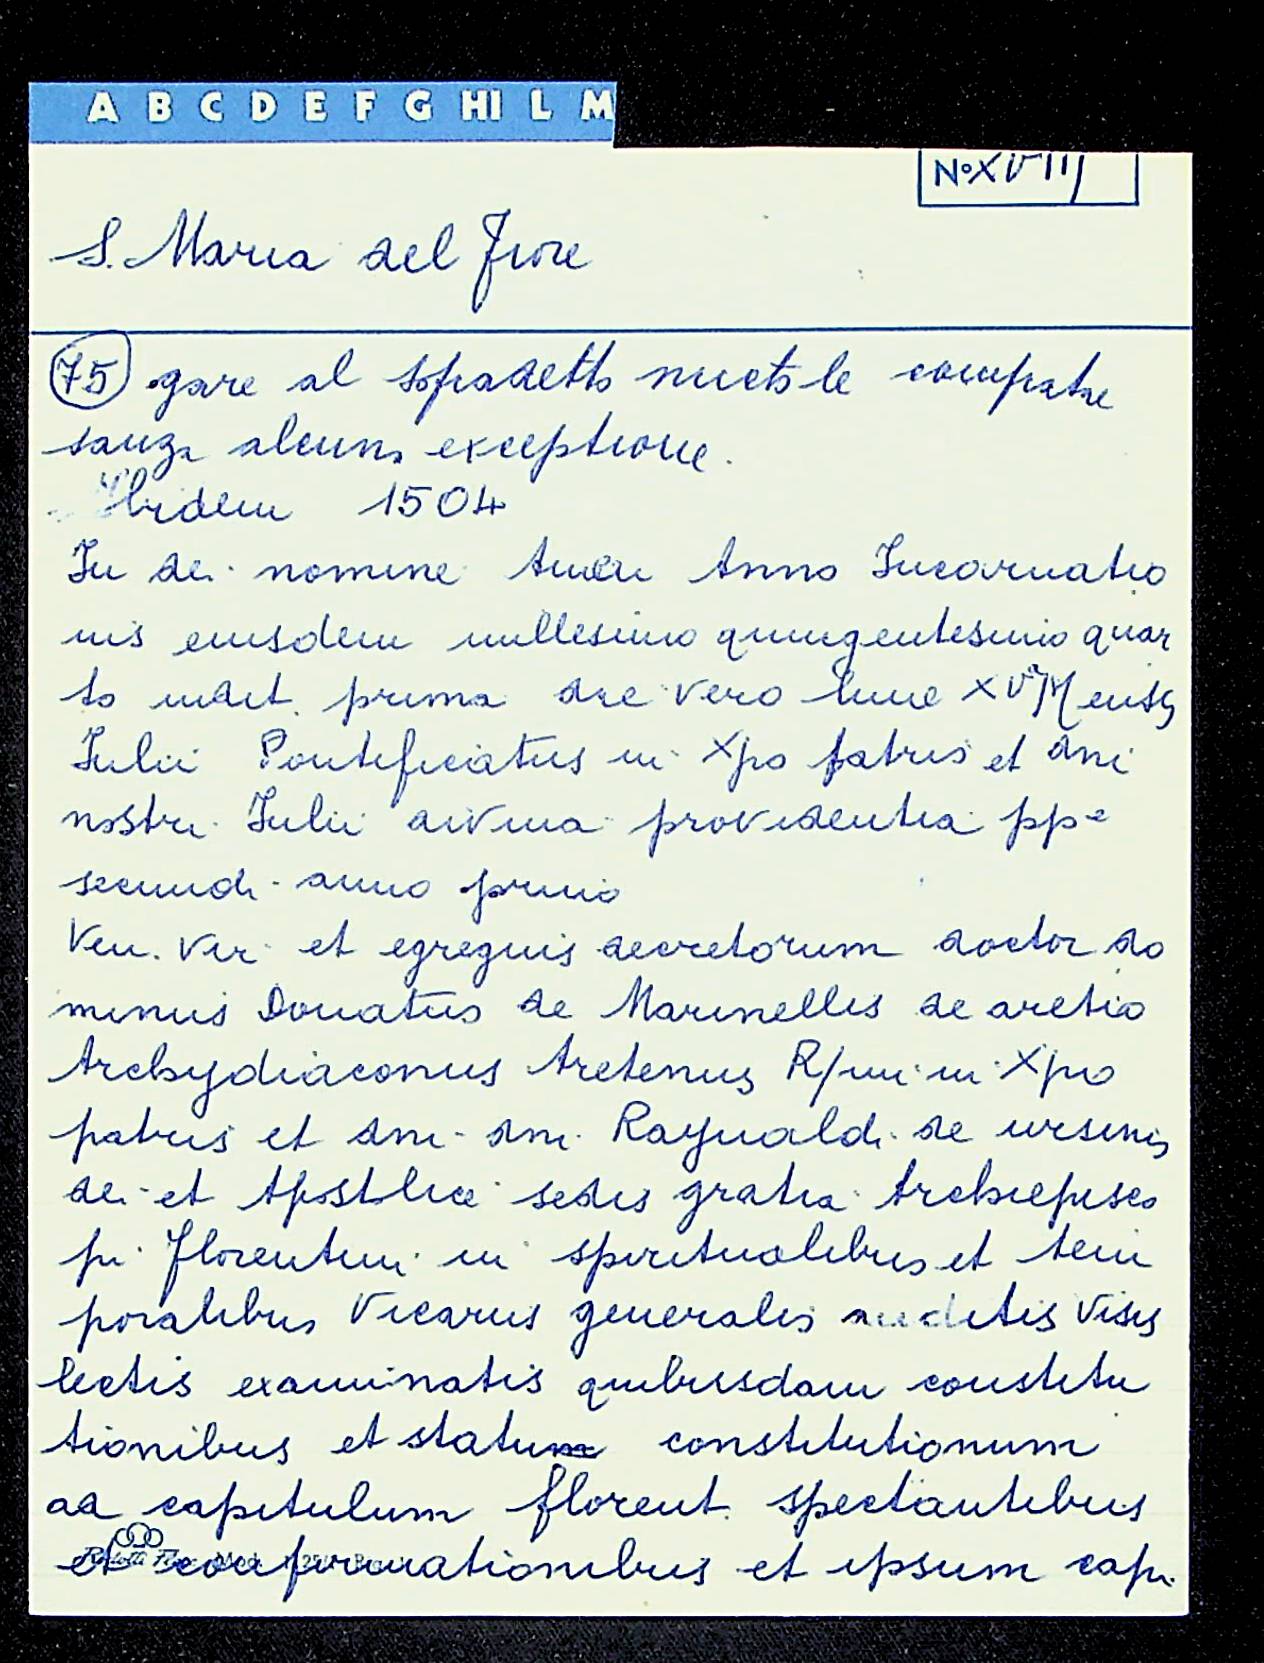 A B C D E F G HI L M
N° XVIII
S. Maria del Fiore
75 gare al sopradetto
sanza alcuna exceptione.
Ibidem 1504
In dei nomine Amen Anno Incarnatio
nis eiusdem millesimo quingentesimo quar
to indict. prima die vero lune XV Mensis
Iulii Pontificatus in Xpo patris et dni
nostri Iulii divina providentia ppe
secundi anno primo
Ven. Vir et egregius decretorum doctor do
minus Donatus de Marinellis de aretio
Archydiaconus Aretenus R/mi in Xpo
patris et dni dni Raynaldi de ursinis
dei et Apostolice sedis gratia Archiepisco
pi florentini in spiritualibus et tem
poralibus Vicarius generalis auditis visis
lectis examinatis quibusdam constitu
tionibus et statum constitutionum
ad capitulum florent. spectantibus
et confirmationibus et ipsum capi